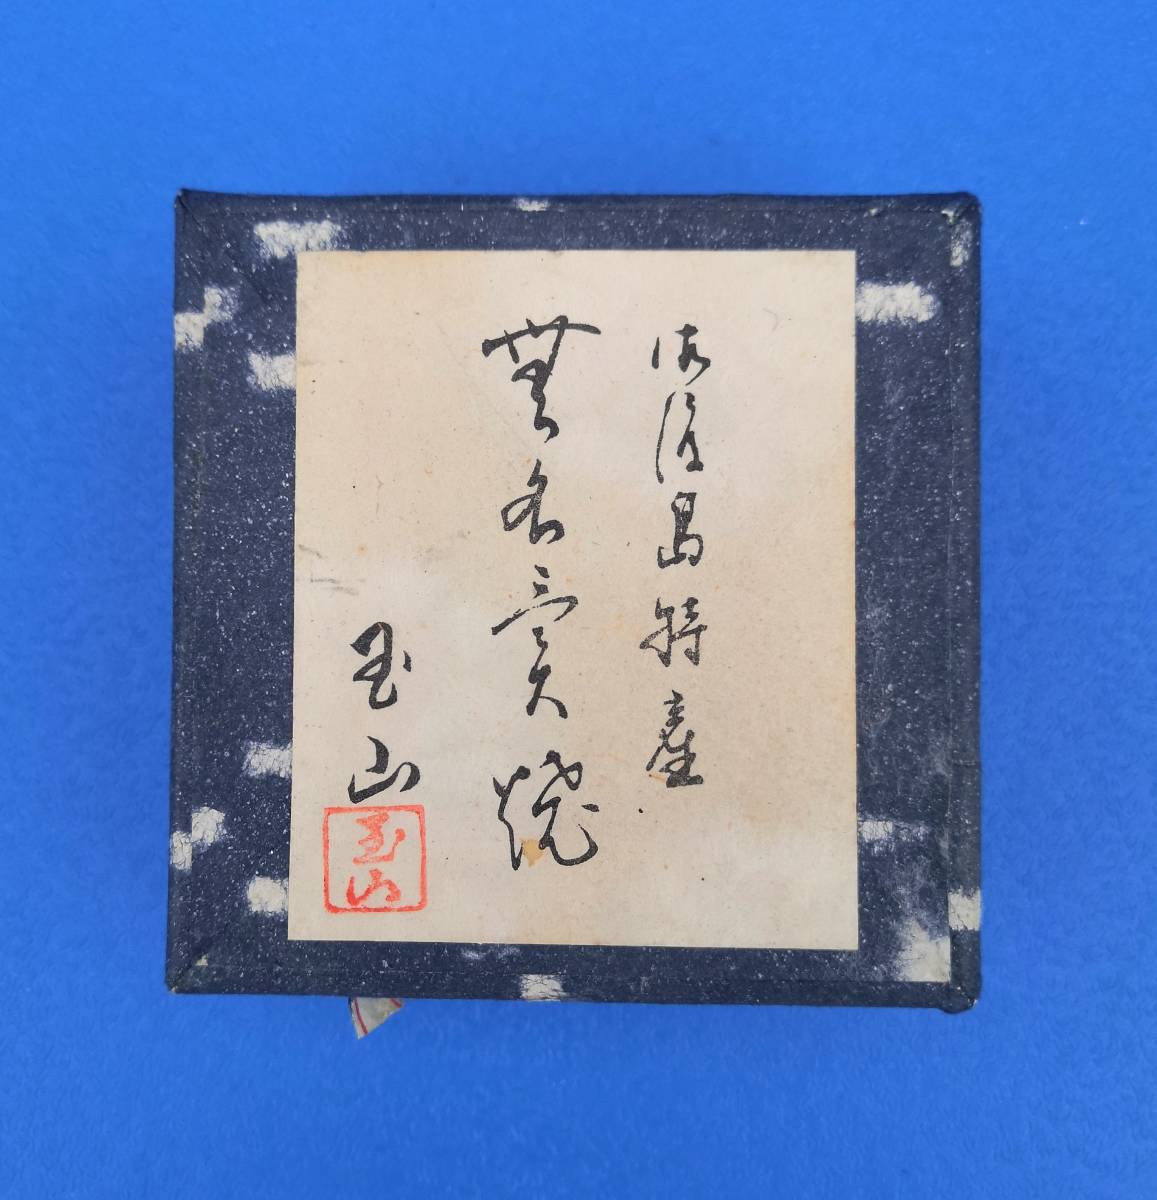 佐渡島特産
無名異焼
玉山
玉山